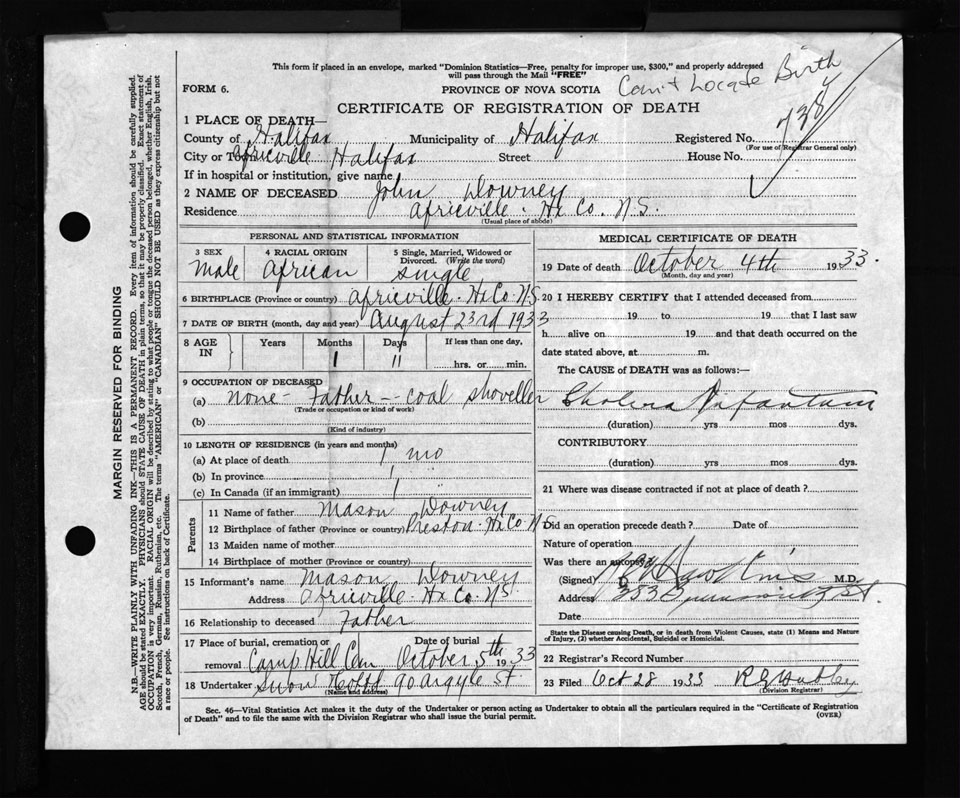 This form if placed in an envelope, marked "Dominion Statistics—Free, penalty for improper use, $300," and properly addressed
will pass through the Mail "FREE"
FORM 6.
PROVINCE OF NOVA SCOTIA
Can't Locate Birth
CERTIFICATE OF REGISTRATION OF DEATH
738
1 PLACE OF DEATH—
County of Halifax Municipality of Halifax Registered No.
(For use of Registrar General only)
City or Town Africville Halifax Street House No.
If in hospital or institution, give name
2 NAME OF DECEASED John Downey
Residence Africville. Hx Co. N.S.
(Usual place of abode)
PERSONAL AND STATISTICAL INFORMATION
3 SEX 4 RACIAL ORIGIN 5 Single, Married, Widowed or Divorced. (Write the word)
male African single
6 BIRTHPLACE (Province or country) Africville. Hx Co. N.S.
7 DATE OF BIRTH (month, day and year) August 23rd 1933
8 AGE IN Years Months Days If less than one day,
1 11 hrs. or min.
9 OCCUPATION OF DECEASED
(a) none - Father -- coal shoveller
(Trade or occupation or kind of work)
(b)
(Kind of industry)
10 LENGTH OF RESIDENCE (in years and months)
(a) At place of death 1 mo
(b) In province 1 "
(c) In Canada (if an immigrant) 1 "
Parents
11 Name of father Mason Downey
12 Birthplace of father (Province or country) Preston. Hx Co. N.S
13 Maiden name of mother
14 Birthplace of mother (Province or country)
15 Informant's name Mason Downey
Address Africville. Hx Co. NS
16 Relationship to deceased Father
17 Place of burial, cremation or removal Camp Hill Cem Date of burial October 5th 1933
18 Undertaker Snow & Co Ltd 90 Argyle St
(Name and address)
MEDICAL CERTIFICATE OF DEATH
19 Date of death October 4th 1933.
(Month, day and year)
20 I HEREBY CERTIFY that I attended deceased from
19 to 19 that I last saw
h alive on 19 and that death occurred on the
date stated above, at m.
The CAUSE of DEATH was as follows:—
Cholera Infantum
(duration) yrs mos dys.
CONTRIBUTORY
(duration) yrs mos dys.
21 Where was disease contracted if not at place of death?
Did an operation precede death? Date of
Nature of operation
Was there an autopsy?
(Signed) M.D.
Address 353 Brunswick St.
Date
State the Disease causing Death, or in death from Violent Causes, state (1) Means and Nature
of Injury, (2) whether Accidental, Suicidal or Homicidal.
22 Registrar's Record Number
23 Filed Oct 28 1933
(Division Registrar)
Sec. 46—Vital Statistics Act makes it the duty of the Undertaker or person acting as Undertaker to obtain all the particulars required in the "Certificate of Registration
of Death" and to file the same with the Division Registrar who shall issue the burial permit.
(OVER)
MARGIN RESERVED FOR BINDING
N.B.—WRITE PLAINLY WITH UNFADING INK—THIS IS A PERMANENT RECORD. Every item of information should be carefully supplied.
AGE should be stated EXACTLY. PHYSICIANS should STATE CAUSE OF DEATH in plain terms, so that it may be properly classified. Exact statement of
OCCUPATION is very important. RACIAL ORIGIN will be described by stating to what people or tongue the deceased person belonged, whether English, Irish,
Scotch, French, German, Russian, Ruthenian, etc. The terms "AMERICAN" or "CANADIAN" SHOULD NOT BE USED as they express citizenship but not
a race or people. See instructions on back of Certificate.